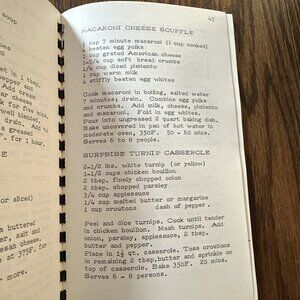 soup
45
MACARONI CHEESE SOUFFLE
1 cup 7 minute macaroni (1 cup cooked)
beaten egg yolks
cup grated American cheese
1-3/4 cup soft bread crumbs
1/4 cup diced pimiento
1 cup warm milk
stiffly beaten egg whites
Cook macaroni in boiling, salted water
7 minutes; drain. Combine milk, cheese,
crumbs. Add egg yolks, pimiento and
macaroni. Fold in egg whites.
Pour into ungreased 2 quart baking dish.
Bake uncovered in pan of hot water in
moderate oven, 350F. 50 - 60 mins.
Serves 6 to 8 people.
SURPRISE TURNIP CASSEROLE
2-1/2 lbs. white turnip (or yellow)
1-1/2 cups chicken bouillon
2 tbsp. finely chopped onion
2 tbsp. chopped parsley
3/4 cup applesauce
1/4 cup melted butter or margarine
1 cup croutons dash of pepper.
Peel and dice turnips. Cook until tender
in chicken bouillon. Mash turnips. Add
onion, parsley, applesauce, 2 tbsp.
butter and pepper.
Place in 1½ qt. casserole. Toss croutons
in remaining 2 tbsp. butter and sprinkle on
top of casserole. Bake 350F. 20 mins.
Serves 6 - 8 persons.
in a
tbsp.
well
blended,
drain.
Add to
a greased
to
. for 1 hour.
or sliced)
buttered
, salt and
esan cheese.
at 375F. for
more.